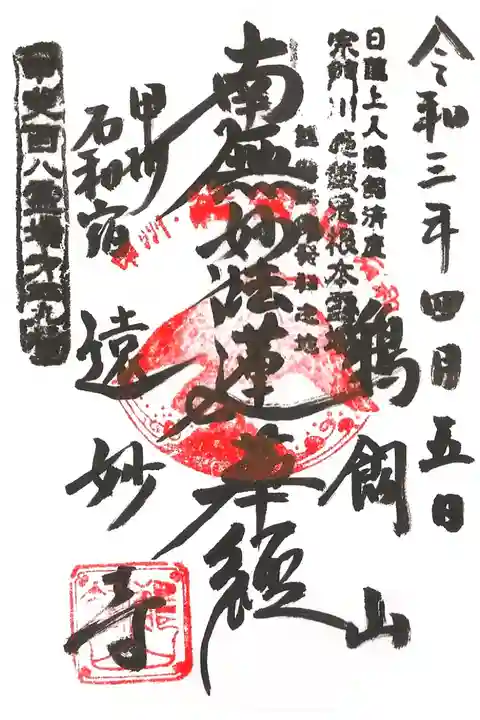 令和三年四月五日
日蓮上人鵜飼済度
宗門川施餓鬼根本霊場
鵜飼山
南無妙法蓮華経
甲州
石和宿
遠妙寺
甲斐百八霊場九十九番